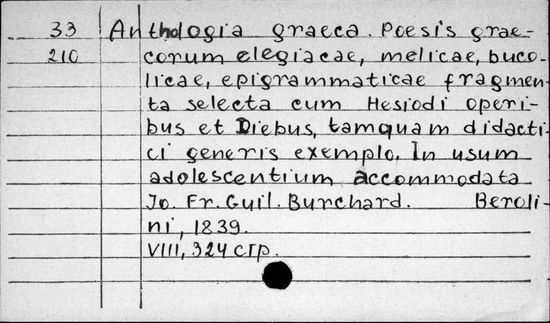 33 Anthologia graeca. Poesis grae-
210 corum elegiacae, melicae, buco-
licae, epigrammaticae fragmen-
ta selecta cum Hesiodi operi-
bus et Diebus, tamquam didacti-
ci generis exemplo. In usum
adolescentium accommodata
Jo. Fr. Guil. Burchard. Beroli-
ni, 1839.
VIII, 324 стр.